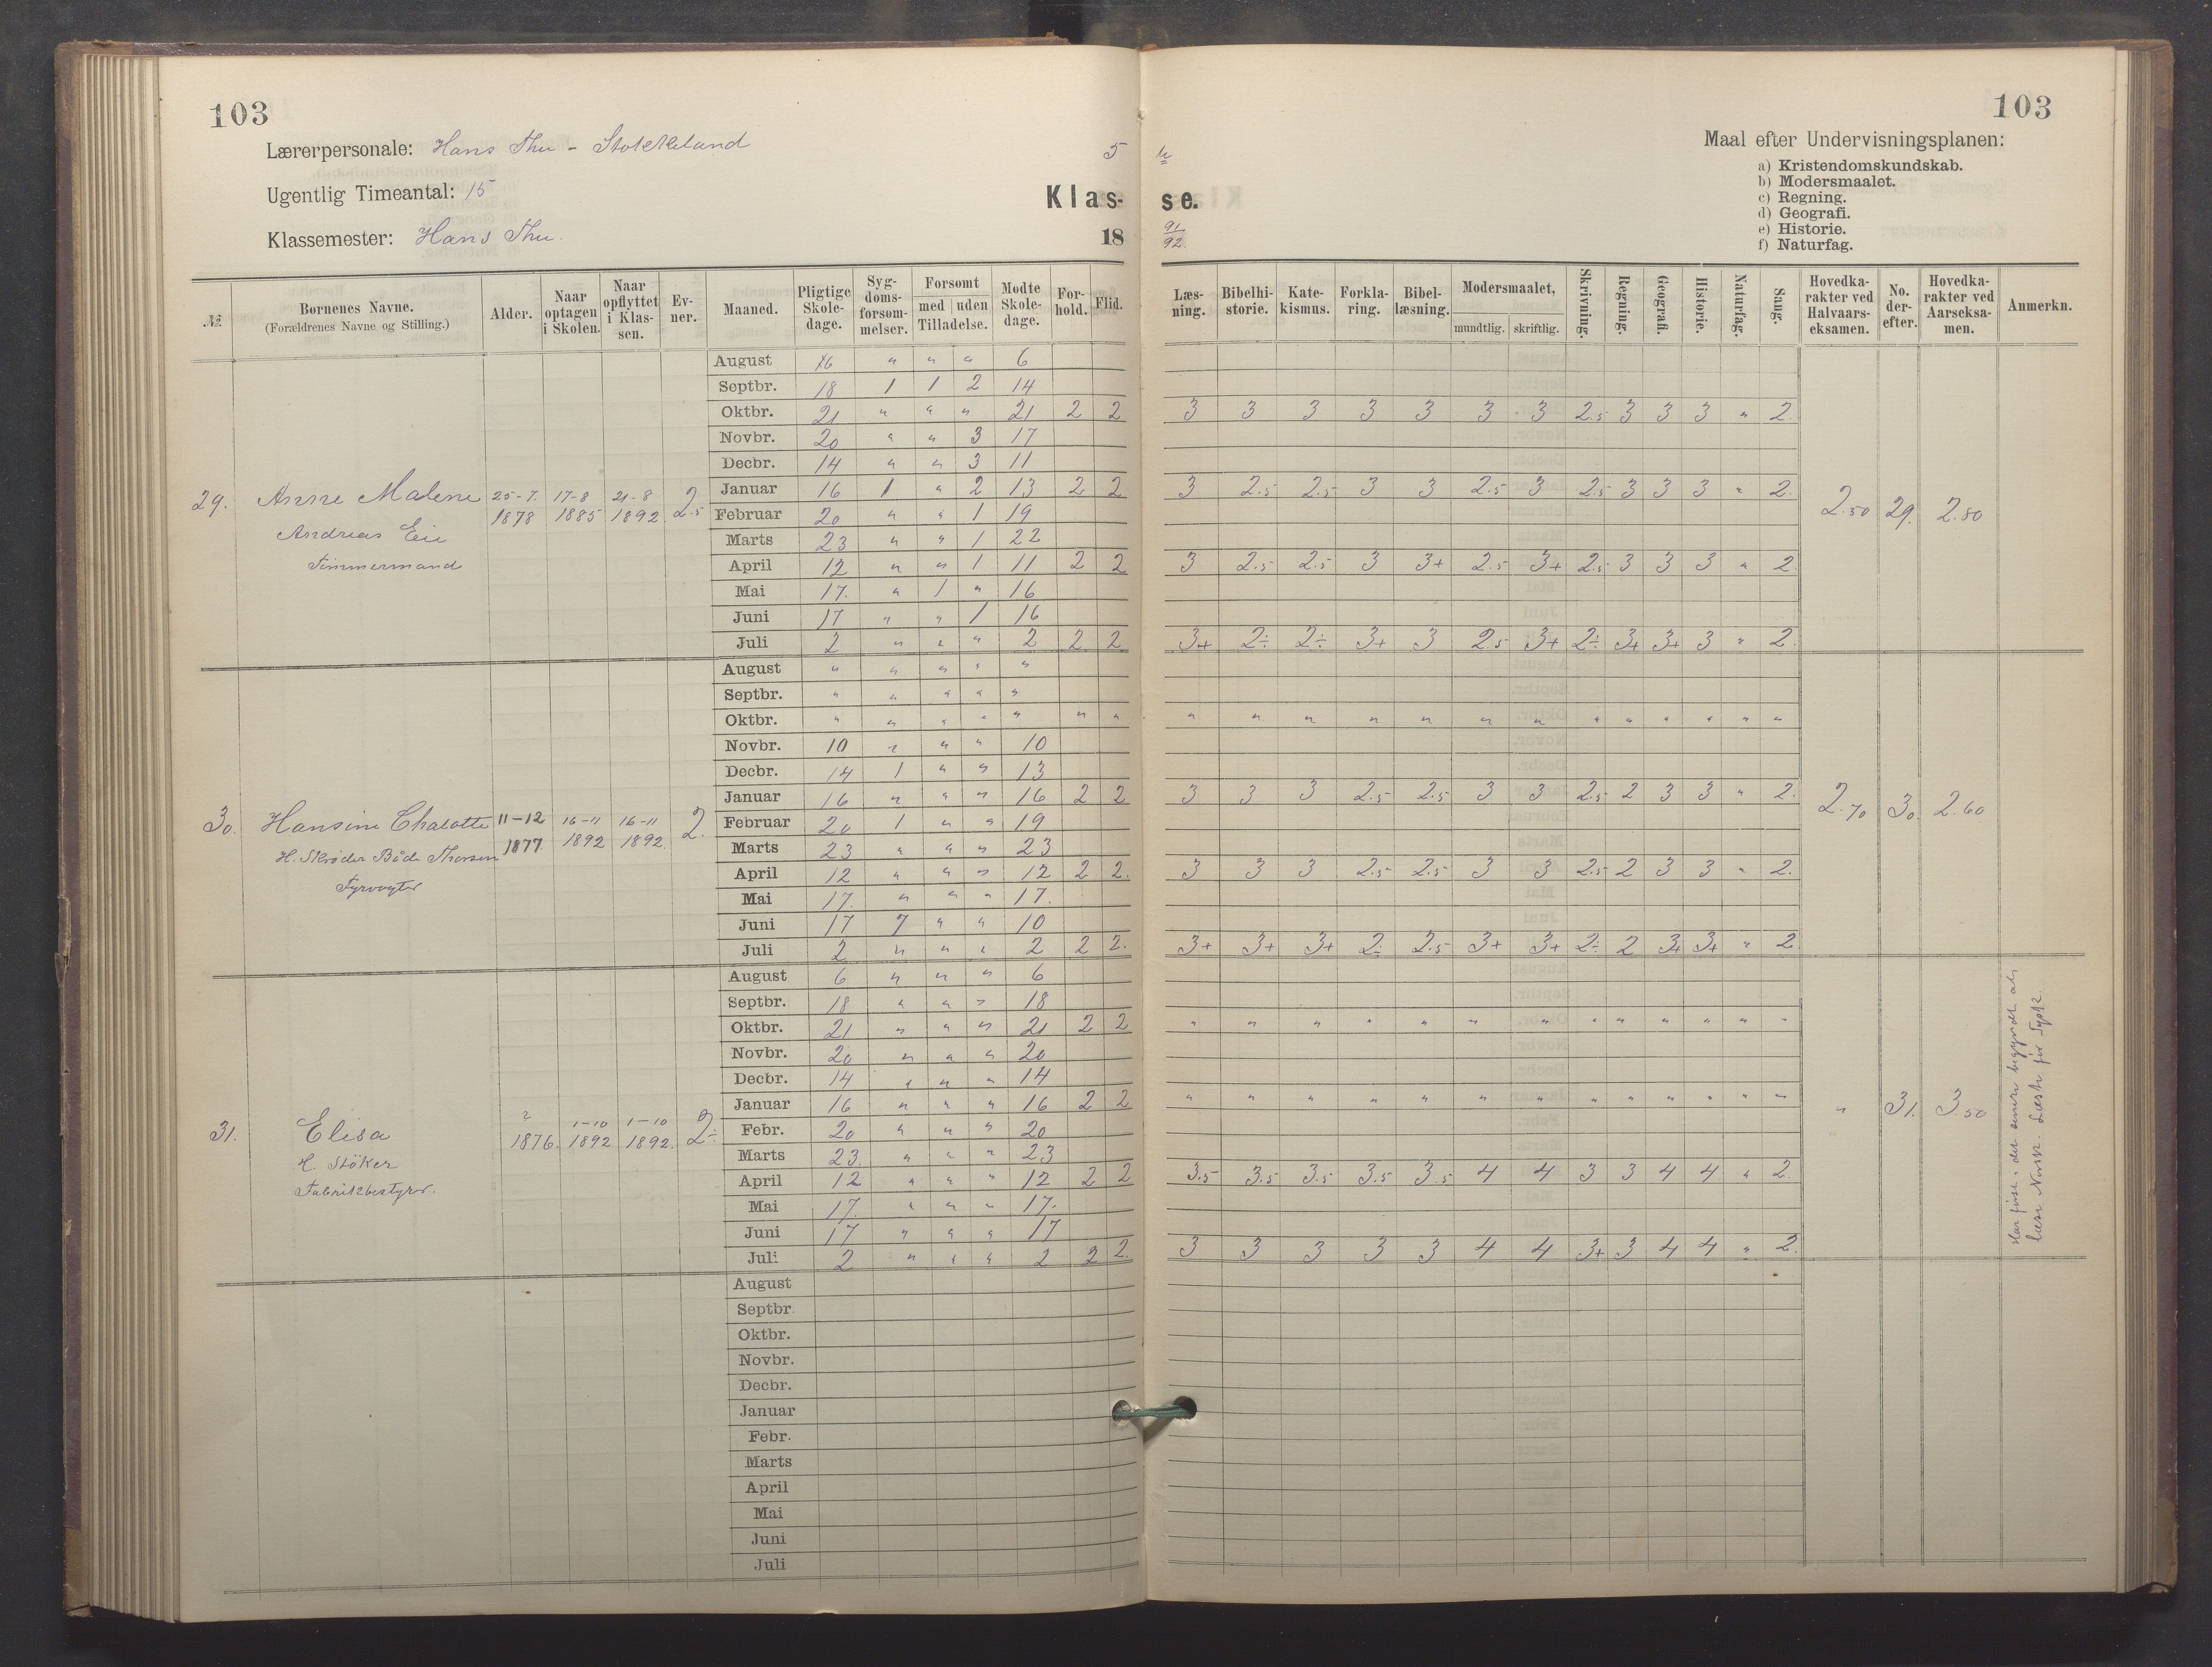 103
103
Lærerpersonale: Hans Thu - Stokkeland
Ugentlig Timeantal: 15
Klassemester: Hans Thu.
5
Klas- se.
18 91/92.
Maal efter Undervisningsplanen:
a) Kristendomskundskab.
b) Modersmaalet.
c) Regning.
d) Geografi.
e) Historie.
f) Naturfag.
№ | Børnenes Navne. (Forældrenes Navne og Stilling.) | Alder. | Naar optagen i Skolen. | Naar opflyttet i Klassen. | Evner. | Maaned. | Pligtige Skoledage. | Sygdomsforsømmelser. | Forsømt med Tilladelse. | uden Tilladelse. | Mødte Skoledage. | Forhold. | Flid. | Læsning. | Bibelhistorie. | Katekismus. | Forklaring. | Bibellæsning. | Modersmaalet, mundtlig. | skriftlig. | Skrivning. | Regning. | Geografi. | Historie. | Naturfag. | Sang. | Hovedkarakter ved Halvaarseksamen. | No. derefter. | Hovedkarakter ved Aarseksamen. | Anmerkn.
29. Anne Malene 25-7. 17-8 21-8 2.5
1878 1885 1892.
Andreas Eie
Tømmermand
2.50 29. 2.80
August 6 " " " 6
Septbr. 18 1 1 2 14
Oktbr. 21 " " " 21 2 2 3 3 3 3 3 3 3 2.5 3 3 3 " 2.
Novbr. 20 " " 3 17
Decbr. 14 " " 3 11
Januar 16 1 " 2 13 2 2 3 2.5 2.5 3 3 2.5 3 2.5 3 3 3 " 2.
Februar 20 " " 1 19
Marts 23 " " 1 22
April 12 " " 1 11 2 2 3 2.5 2.5 3 3+ 2.5 3+ 2.5 3 3 3 " 2.
Mai 17. " 1 " 16
Juni 17 " " 1 16
Juli 2 " " " 2 2 2 3+ 2÷ 2÷ 3+ 3 2.5 3+ 2÷ 3+ 3+ 3 " 2.
30. Hansine Chalotte 11-12 16-11 16-11 2.
1877. 1892 1892.
H. Skrøder Bøde Thorsen
Fyrvogter
2.70 30. 2.60
August " " " " "
Septbr. " " " " "
Oktbr. " " " " " " " " " " " " " " " " " " " "
Novbr. 10 " " " 10
Decbr. 14 1 " " 13
Januar 16 " " " 16 2 2 3 3 3 2.5 2.5 3 3 2.5 2 3 3 " 2.
Februar 20 1 " " 19
Marts 23 " " " 23
April 12 " " " 12 2 2. 3 3 3 2.5 2.5 3 3 2.5 2 3 3 " 2.
Mai 17. " " " 17.
Juni 17 7 " " 10
Juli 2 " " " 2 2 2. 3+ 3+ 3+ 2÷ 2.5 3+ 3+ 2÷ 2 3+ 3+ " 2
31. Elisa 1-10 1-10 2÷
1876. 1892 1892.
H. Støker
Fabrikbestyrer.
" 31. 3.50
August 6 " " " 6
Septbr. 18 " " " 18
Oktbr. 21 " " " 21 2 2 " " " " " " " " " " " " "
Novbr. 20 " " " 20
Decbr. 14 " " " 14
Januar 16 " " " 16 2 2 " " " " " " " " " " " " "
Febr. 20 " " " 20
Marts 23. " " " 23
April 12 " " " 12 2 2 3.5 3.5 3.5 3.5 3.5 4 4 3 3 4 4 " 2.
Mai 17. " " " 17.
Juni 17 " " " 17
Juli 2 " " " 2 2 2. 3 3 3 3 3 4 4 3+ 3 4 4 " 2.
Har først i det senere begyndt at
læse Norsk. Læste før Tysk.
August
Septbr.
Oktbr.
Novbr.
Decbr.
Januar
Febr.
Marts
April
Mai
Juni
Juli